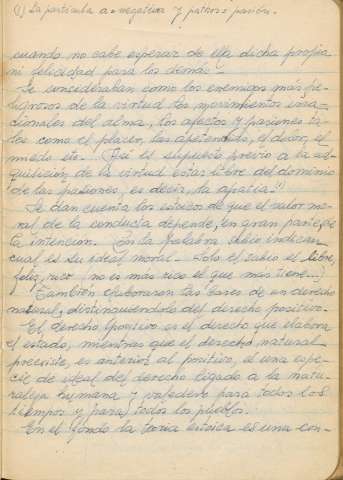 (1) La partícula a = negativa y pathos = pasión.
cuando no cabe esperar de ella dicha propia
ni felicidad para los demás.-
Se consideraban como los enemigos más pe-
ligrosos de la virtud los movimientos irra-
cionales del alma, los afectos y pasiones ta-
les como el placer, las apetencias, el dolor, el
miedo etc. Así el supuesto previo a la ad-
quisición de la virtud estar libre del dominio
de las pasiones, es decir, la apatía.(1)
Se dan cuenta los estoicos de que el valor mo-
ral de la conducta depende, en gran parte, de
la intención. En la palabra sabio indican
cual es su ideal moral.- Solo el sabio es libre,
feliz, rico (no es más rico el que más tiene...)
También elaboraron las bases de un derecho
natural, distinguiéndolo del derecho positivo.
El derecho positivo es el derecho que elabora
el estado, mientras que el derecho natural
preexiste, es anterior al positivo, es una espe-
cie de ideal del derecho ligado a la natu-
raleza humana y valedero para todos los
tiempos y para todos los pueblos.
En el fondo la teoría estoica es una con-